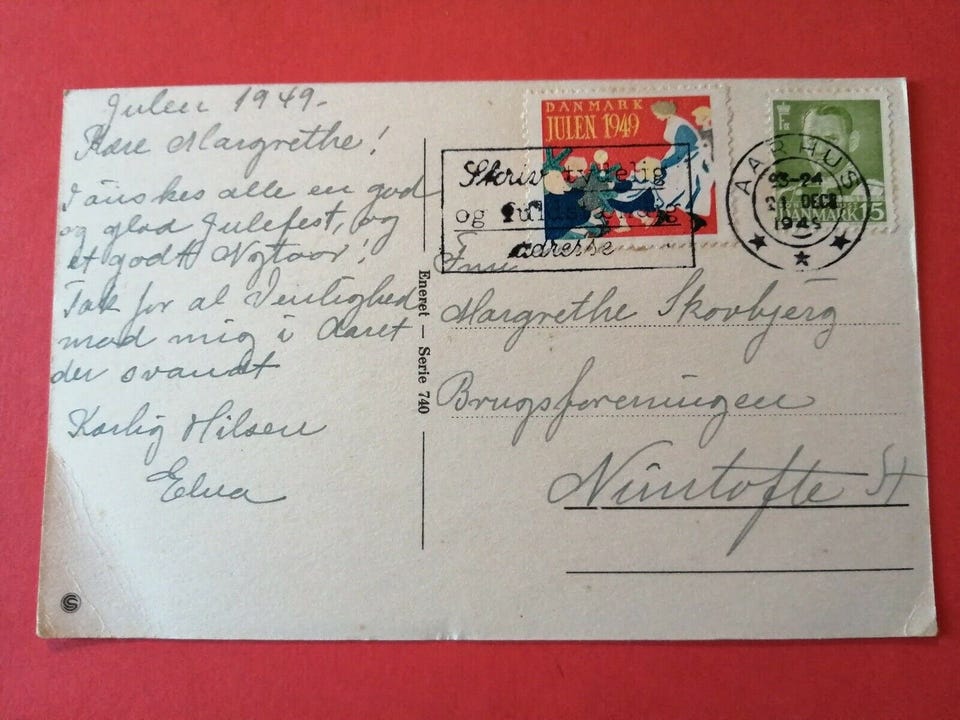 Julen 1949.
Kære Margrethe!
I ønskes alle en god
og glad Julefest, og
et godt Nytaar!
Tak for al Venlighed
mod mig i Aaret
der svandt
Kærlig Hilsen
Elva
Eneret — Serie 740
DANMARK
JULEN 1949
Skriv tydelig
og fuldstændig
adresse
AARHUS
23-24
21 DECB
1949
DANMARK 15
Fru
Margrethe Skovbjerg
Brugsforeningen
Nimtofte St